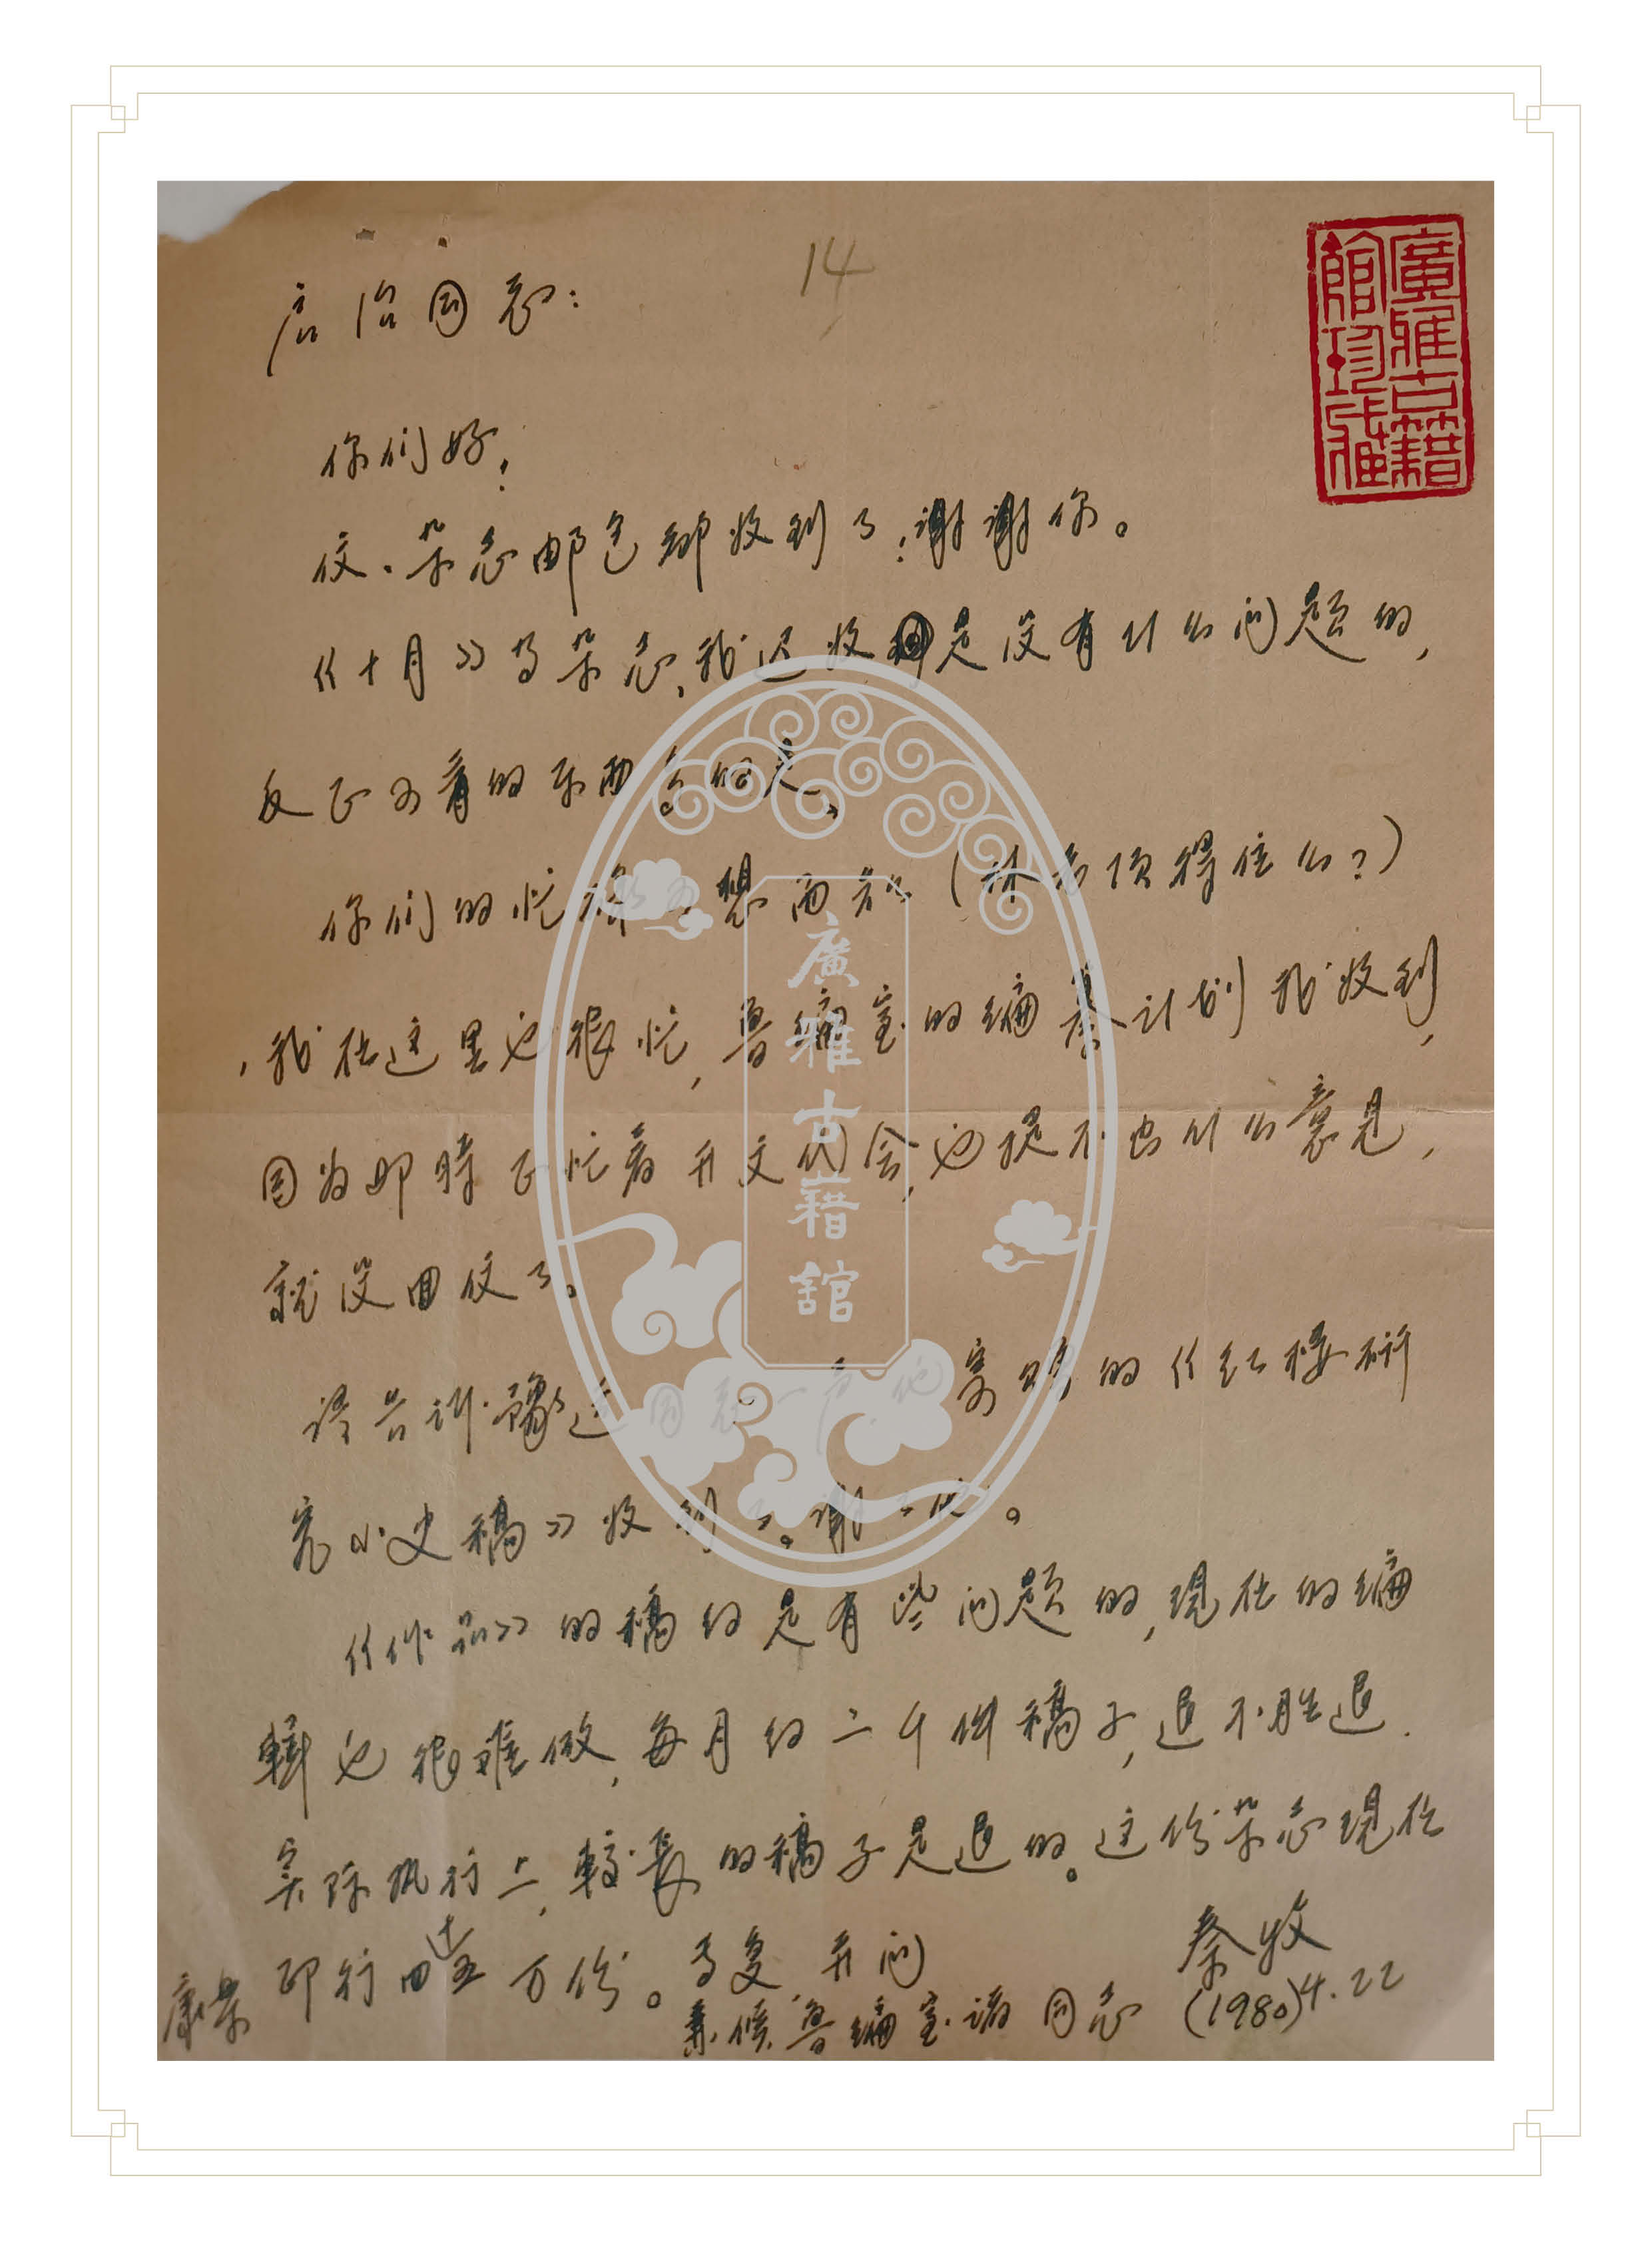 14
启治同志：
你们好！
信、杂志邮包都收到了，谢谢你。
《十月》等杂志，我迟收到是没有什么问题的，
反正可看的东西多的是。
你们的忙碌可想而知（林老顶得住么？）
，我在这里也很忙，鲁编室的编纂计划我收到，
因为那时正忙着开文代会，也提不出什么意见，
就没回信了。
请告诉豫适同志一声，他寄赠的《红楼研
究小史稿》收到了。谢谢他。
《作品》的稿约是有些问题的，现在的编
辑也很难做，每月约二千件稿子，退不胜退。
实际执行上，较长的稿子是退的。这份杂志现在
印行四十五万份。専复 并问
康荣
秦牧
（1980）4.22
兼候鲁编室诸同志
廣雅古籍館珍藏
廣雅古籍館